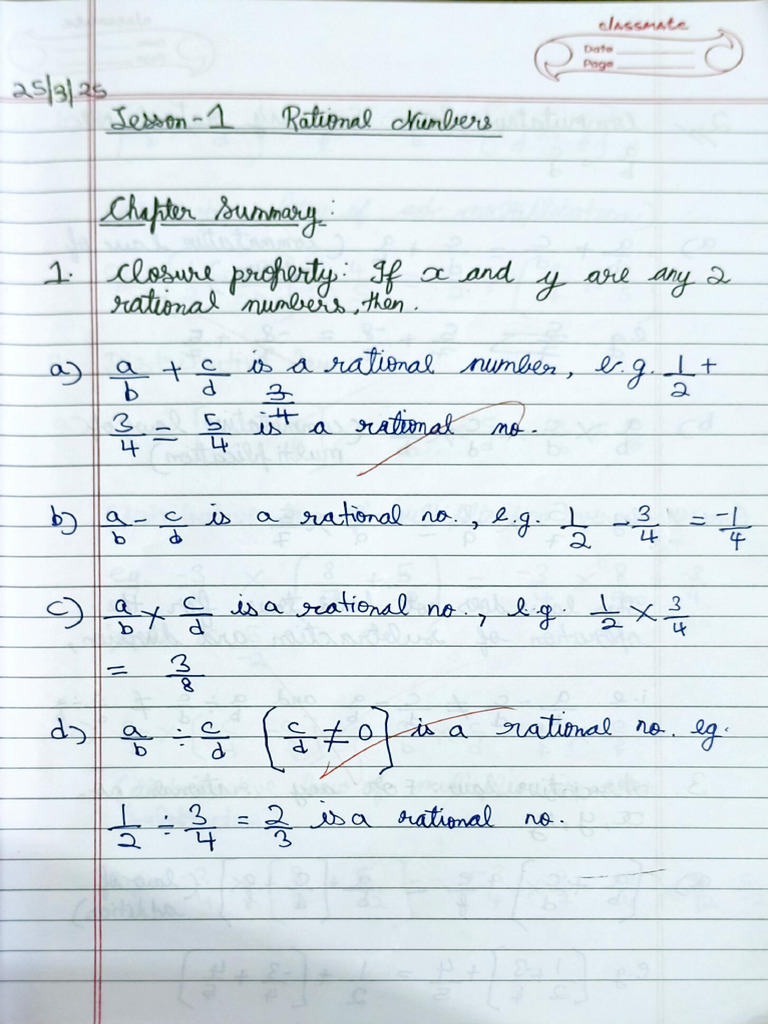 classmate
Date
Page
25/3/25
Lesson-1 Rational Numbers
Chapter Summary:
1. Closure property: If x and y are any 2
rational numbers, then.
a) a/b + c/d is a rational number, e.g. 1/2 +
3/4
3/4 = 5/4 is a rational no.
b) a/b - c/d is a rational no., e.g. 1/2 - 3/4 = -1/4
c) a/b × c/d is a rational no., e.g. 1/2 × 3/4
= 3/8
d) a/b ÷ c/d [c/d ≠ 0] is a rational no. eg.
1/2 ÷ 3/4 = 2/3 is a rational no.